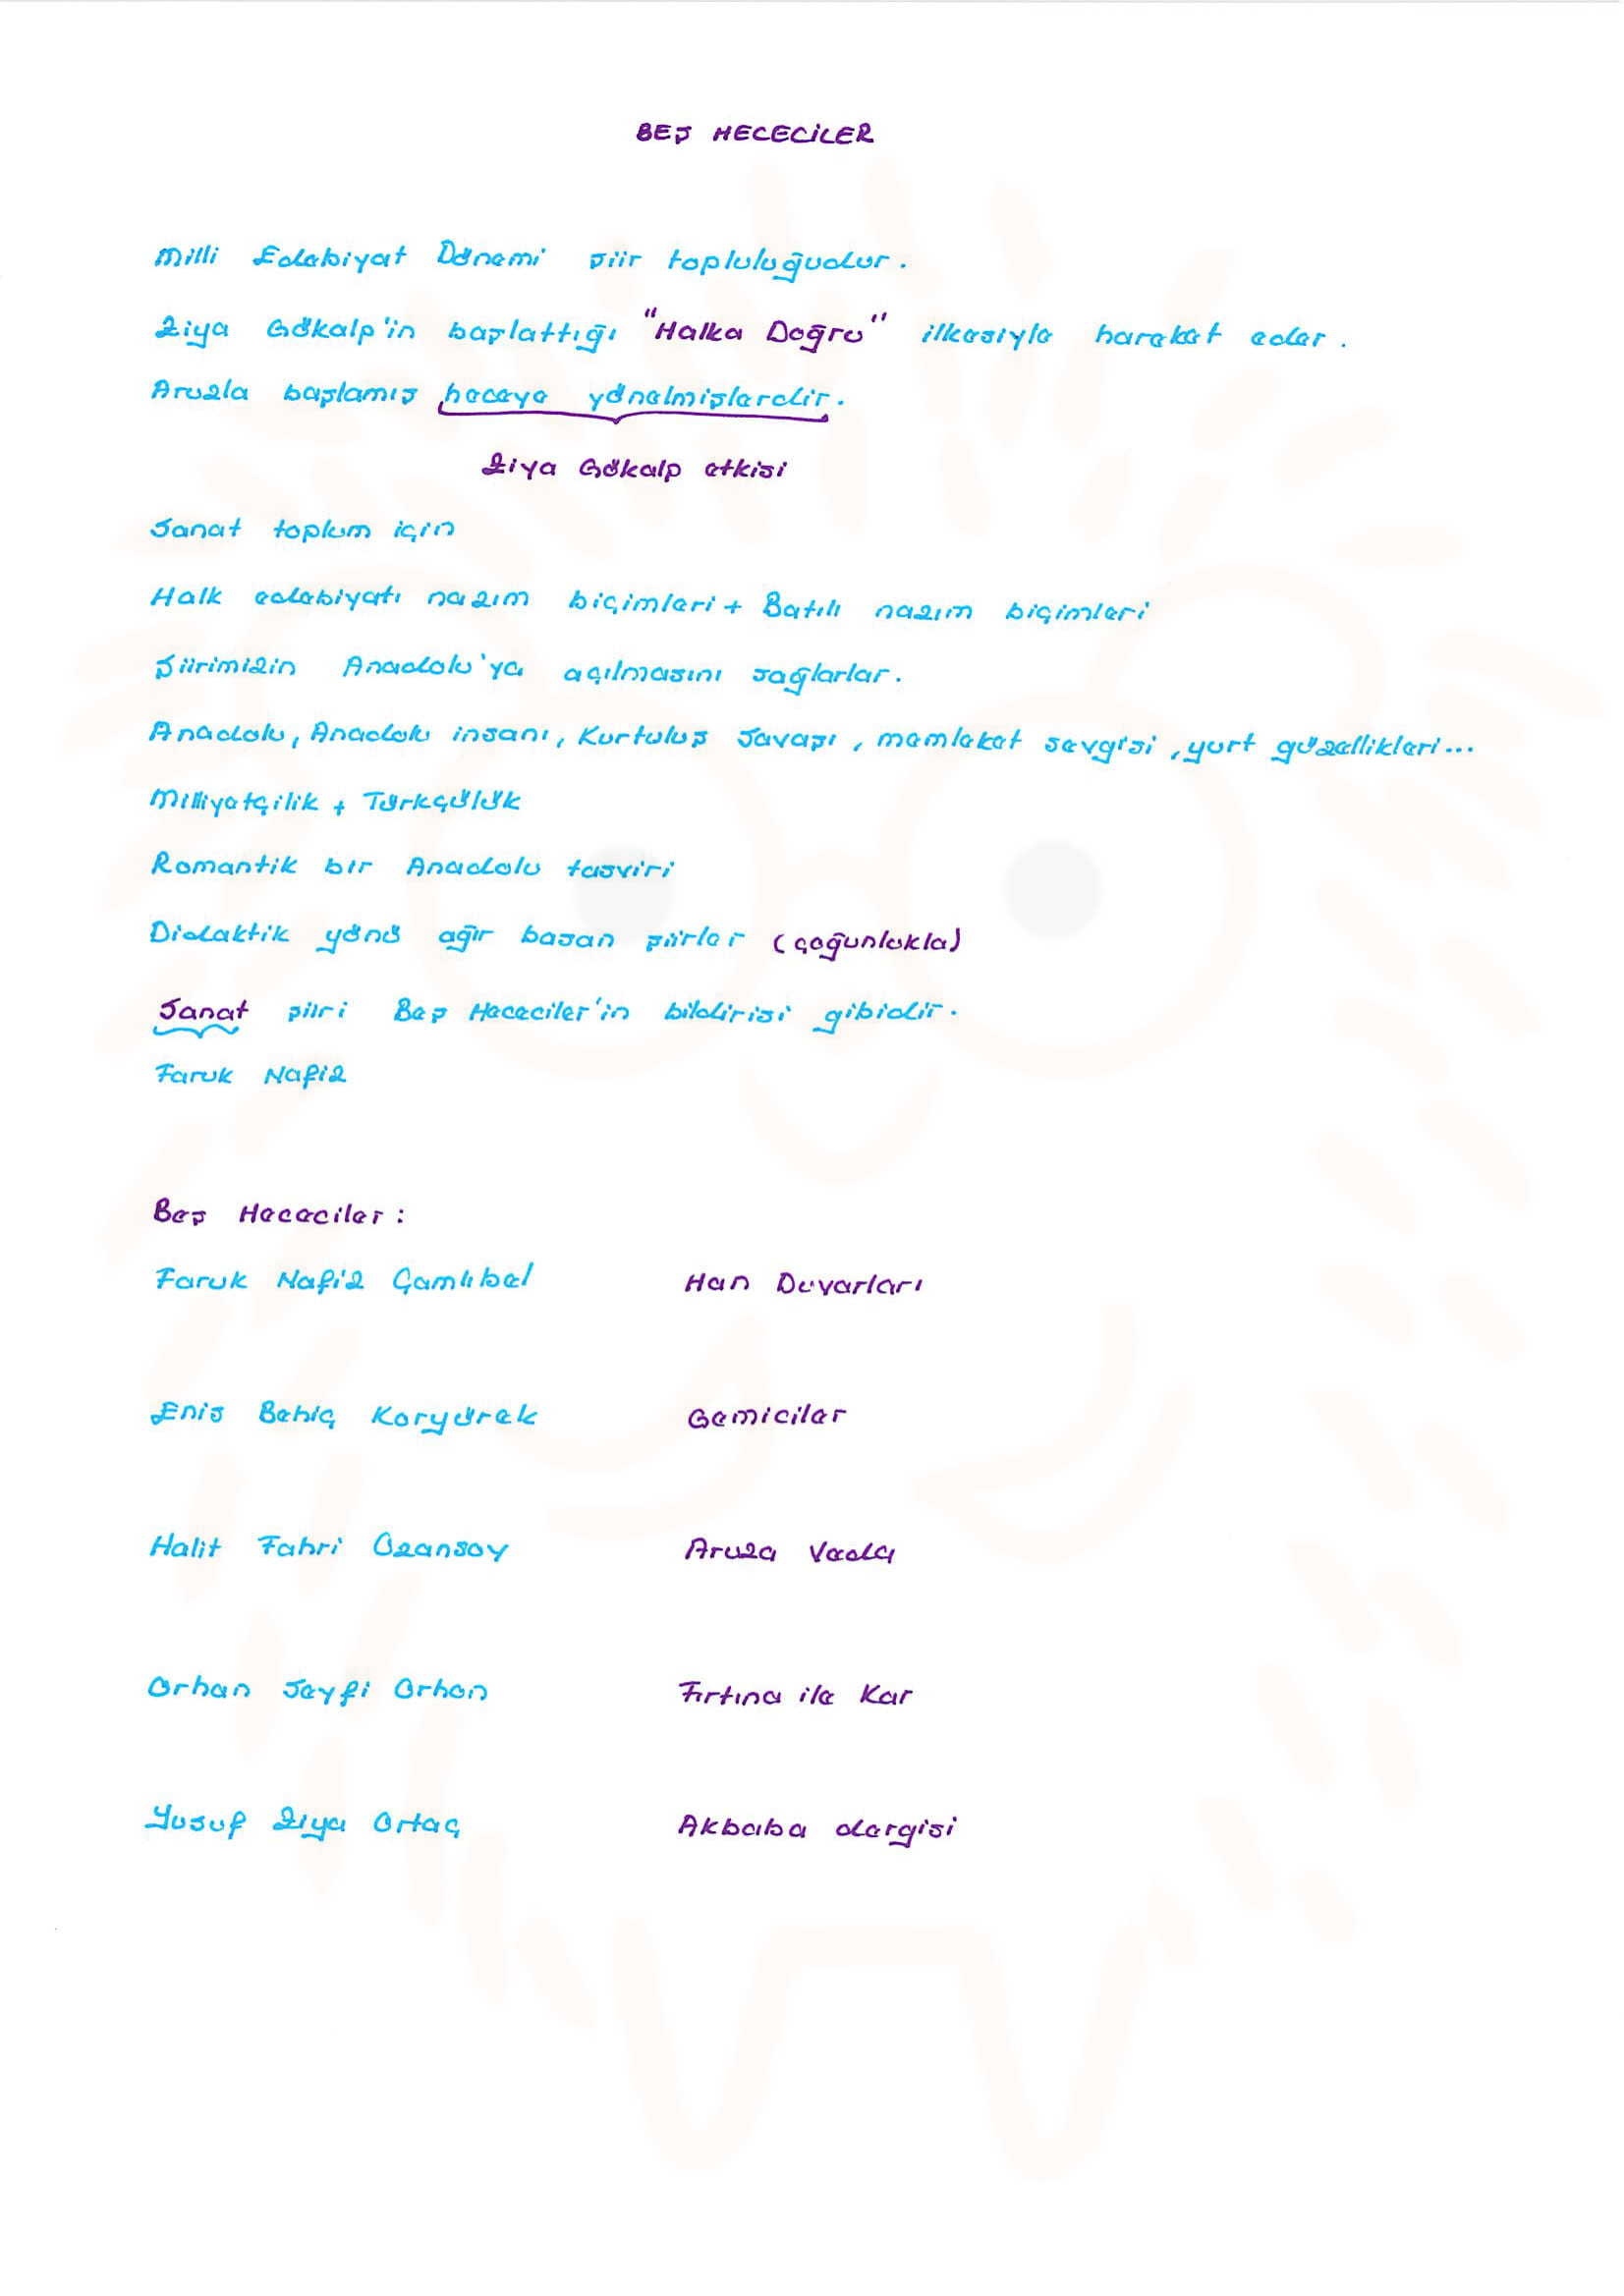 BEŞ HECECİLER
Milli Edebiyat Dönemi şiir topluluğudur.
Ziya Gökalp'in başlattığı "Halka Doğru" ilkesiyle hareket eder.
Aruzla başlamış heceye yönelmişlerdir.
Ziya Gökalp etkisi
Sanat toplum için
Halk edebiyatı nazım biçimleri + Batılı nazım biçimleri
Şiirimizin Anadolu'ya açılmasını sağlarlar.
Anadolu, Anadolu insanı, Kurtuluş Savaşı, memleket sevgisi, yurt güzellikleri...
Milliyetçilik + Türkçülük
Romantik bir Anadolu tasviri
Didaktik yönü ağır basan şiirler (çoğunlukla)
Sanat şiiri Beş Hececiler'in bildirisi gibidir.
Faruk Nafiz
Beş Hececiler:
Faruk Nafiz Çamlıbel Han Duvarları
Enis Behiç Koryürek Gemiciler
Halit Fahri Ozansoy Aruza Veda
Orhan Seyfi Orhon Fırtına ile Kar
Yusuf Ziya Ortaç Akbaba dergisi